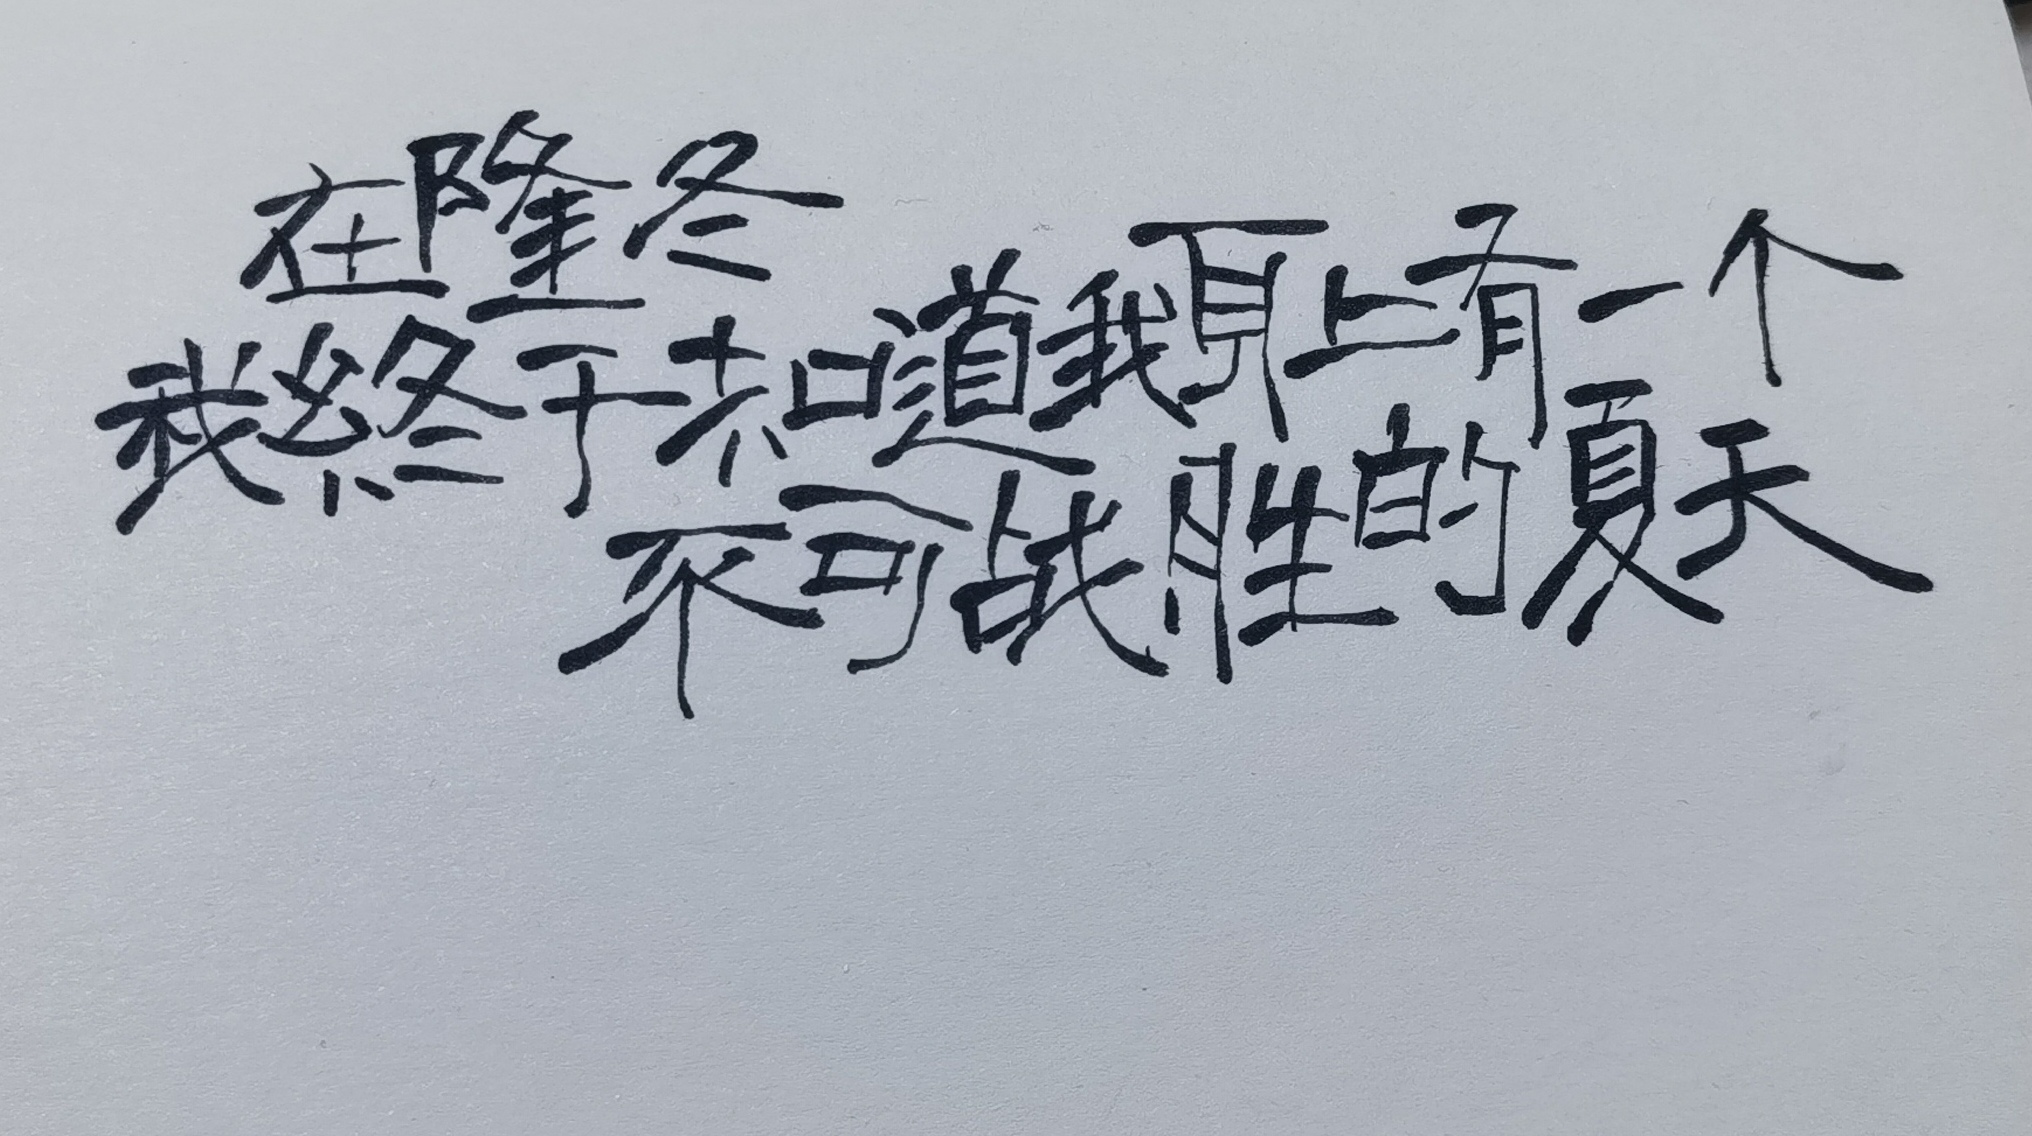 在隆冬
我終于知道我身上有一个
不可战胜的夏天